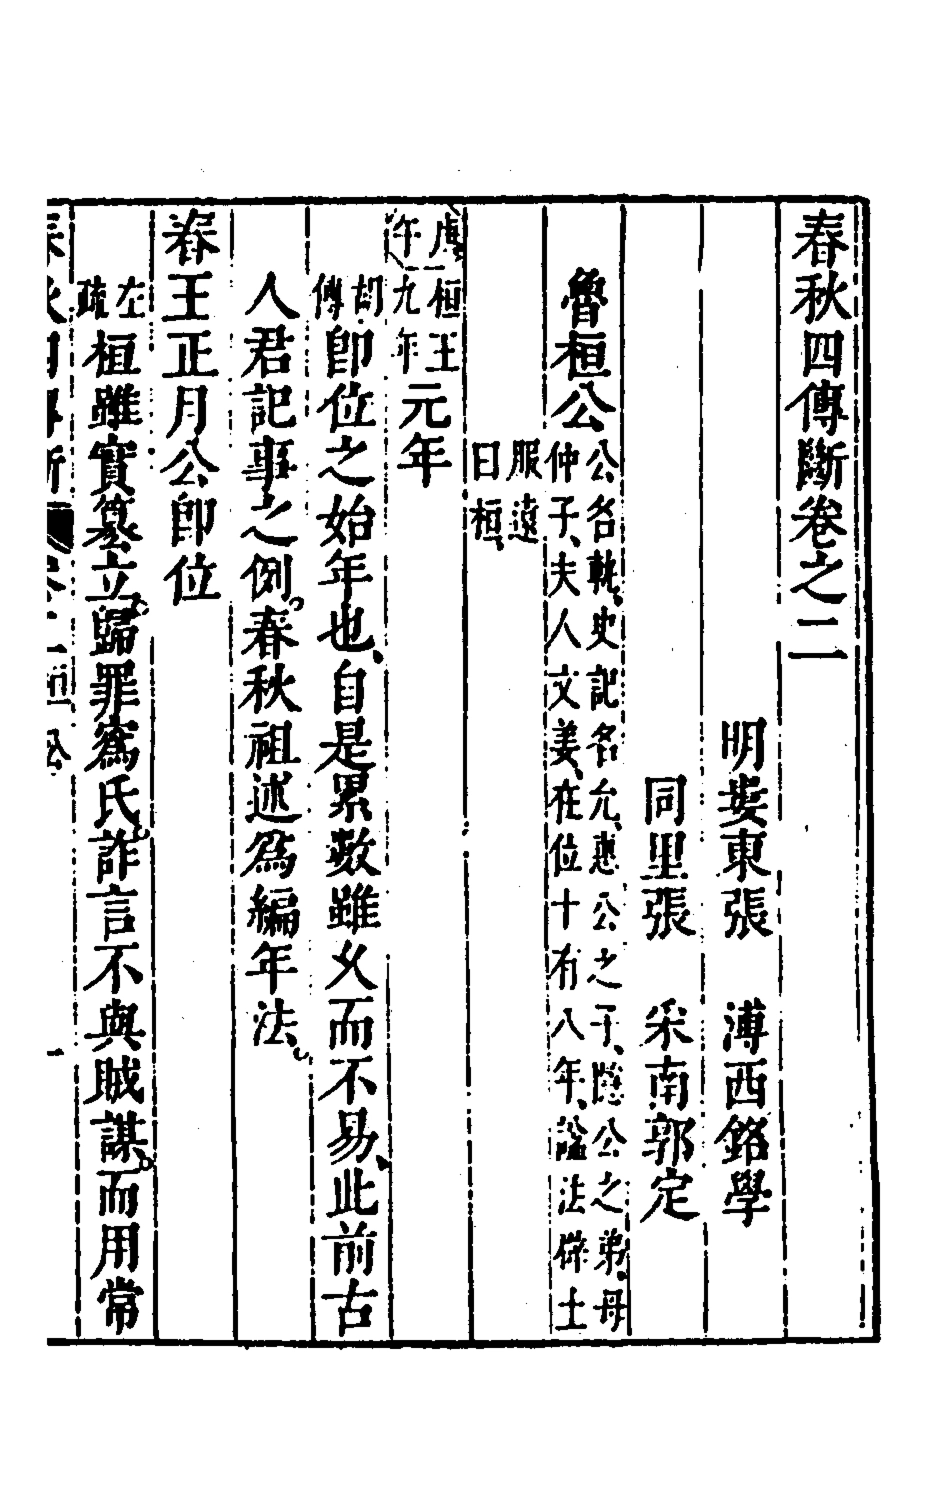 春秋四傳斷卷之二
明婁東張　溥西銘學
同里張　采南郭定
魯桓公
公名軌、史記名允、惠公之子、隱公之弟、母
仲子、夫人文姜、在位十有八年、謚法辟土
服遠
曰桓、
庚午
桓王九年
元年
胡傳
卽位之始年也、自是累數雖久而不易、此前古
人君記事之例。春秋祖述爲編年法。
春王正月公卽位
左疏
桓雖實篡立。歸罪寪氏。詐言不與賊謀。而用常
春秋四傳斷 卷二 桓公 一